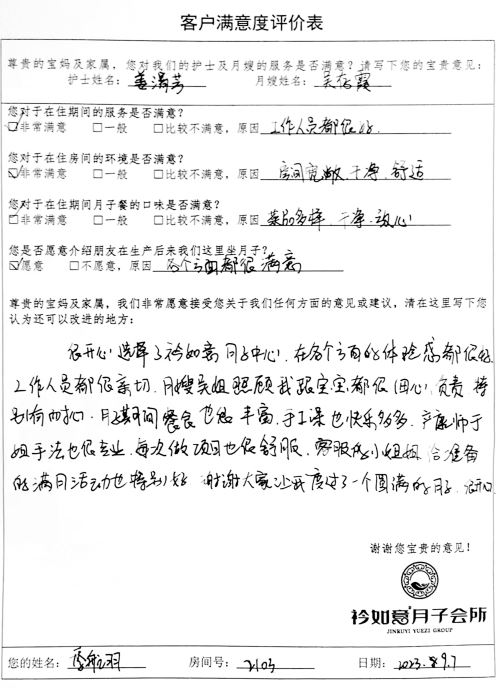 客户满意度评价表
尊贵的宝妈及家属，您对我们的护士及月嫂的服务是否满意？请写下您的宝贵意见：
护士姓名： 姜 芳 月嫂姓名： 吴 霞
您对于在住期间的服务是否满意？
☑非常满意 □一般 □比较不满意，原因 工作人员都很好.
您对于在住房间的环境是否满意？
☑非常满意 □一般 □比较不满意，原因 房间宽敞、干净、舒适
您对于在住期间月子餐的口味是否满意？
☑非常满意 □一般 □比较不满意，原因 菜品多样、干净、放心
您是否愿意介绍朋友在生产后来我们这里坐月子？
☑愿意 □不愿意，原因 各个方面都很满意
尊贵的宝妈及家属，我们非常愿意接受您关于我们任何方面的意见或建议，请在这里写下您
认为还可以改进的地方：
很开心选择了衿如意月子中心，在各个方面的体验感都很好
工作人员都很亲切，月嫂吴姐照顾我跟宝宝都很用心，负责 特
别有面扣，月子期间餐食也很丰富，手工课也快乐多多，产康师于
姐手法也很专业，每次做项目也很舒服，客服的小姐姐 给准备
的满月活动也特别好 谢谢大家让我度过了一个圆满的月子，很开心
谢谢您宝贵的意见！
衿如意月子会所
JINRUYI YUEZI GROUP
您的姓名： 季 羽 房间号： 2103 日期： 2023.8.9.7